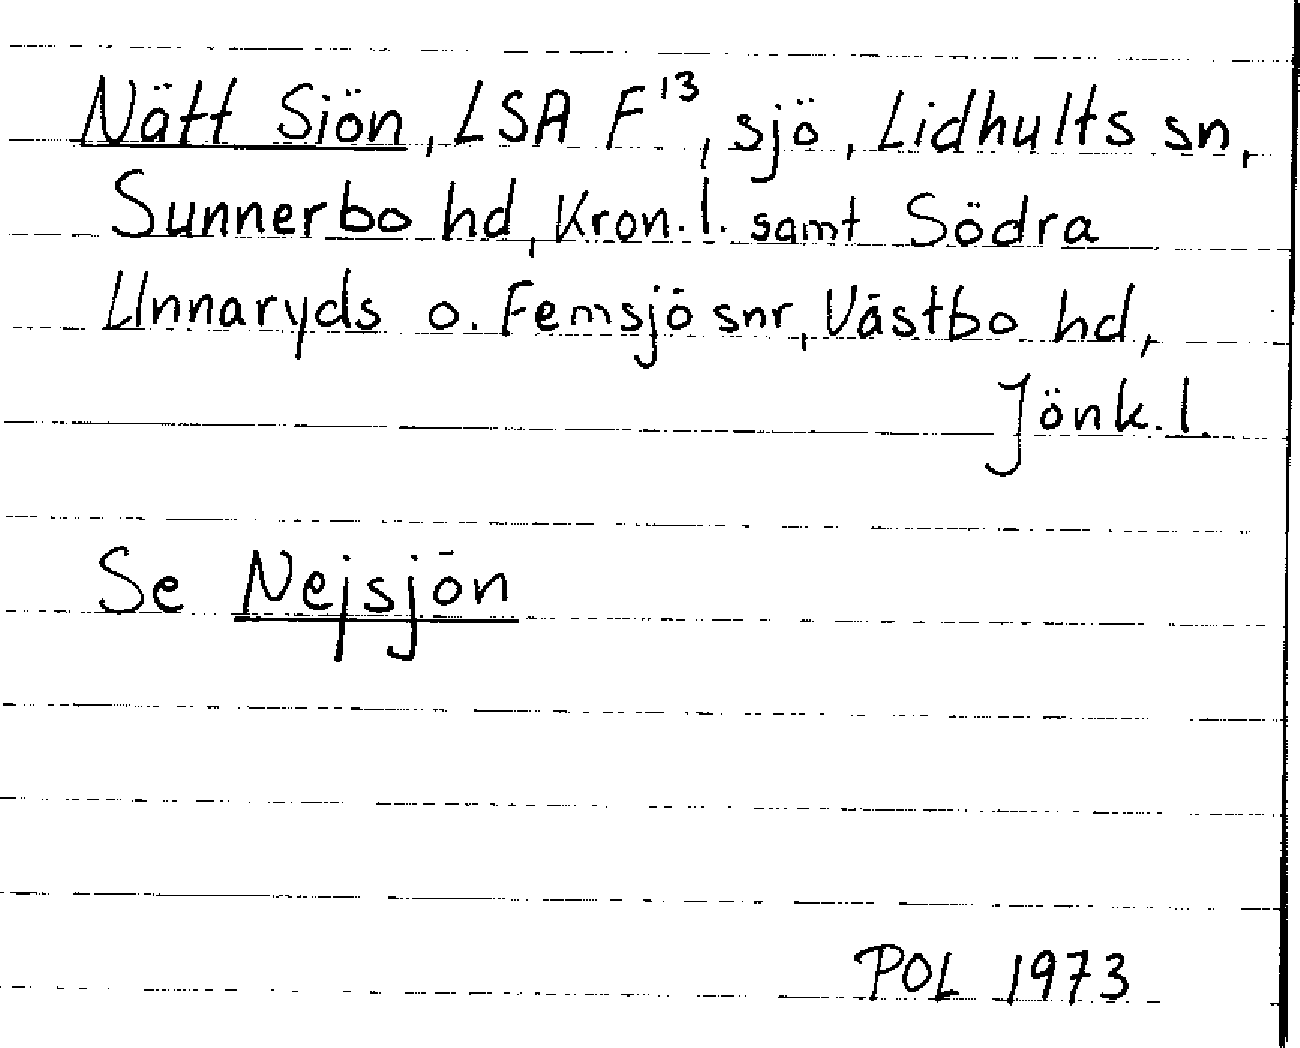 Nätt Siön, LSA F¹³, sjö, Lidhults sn,
Sunnerbo hd, Kron. l. samt Södra
Unnaryds o. Femsjö snr, Västbo hd,
Jönk. l.
Se Nejsjön
POL 1973